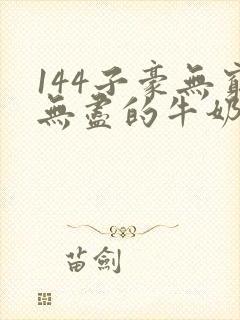 144子豪無窮
無盡的牛奶
苗劍